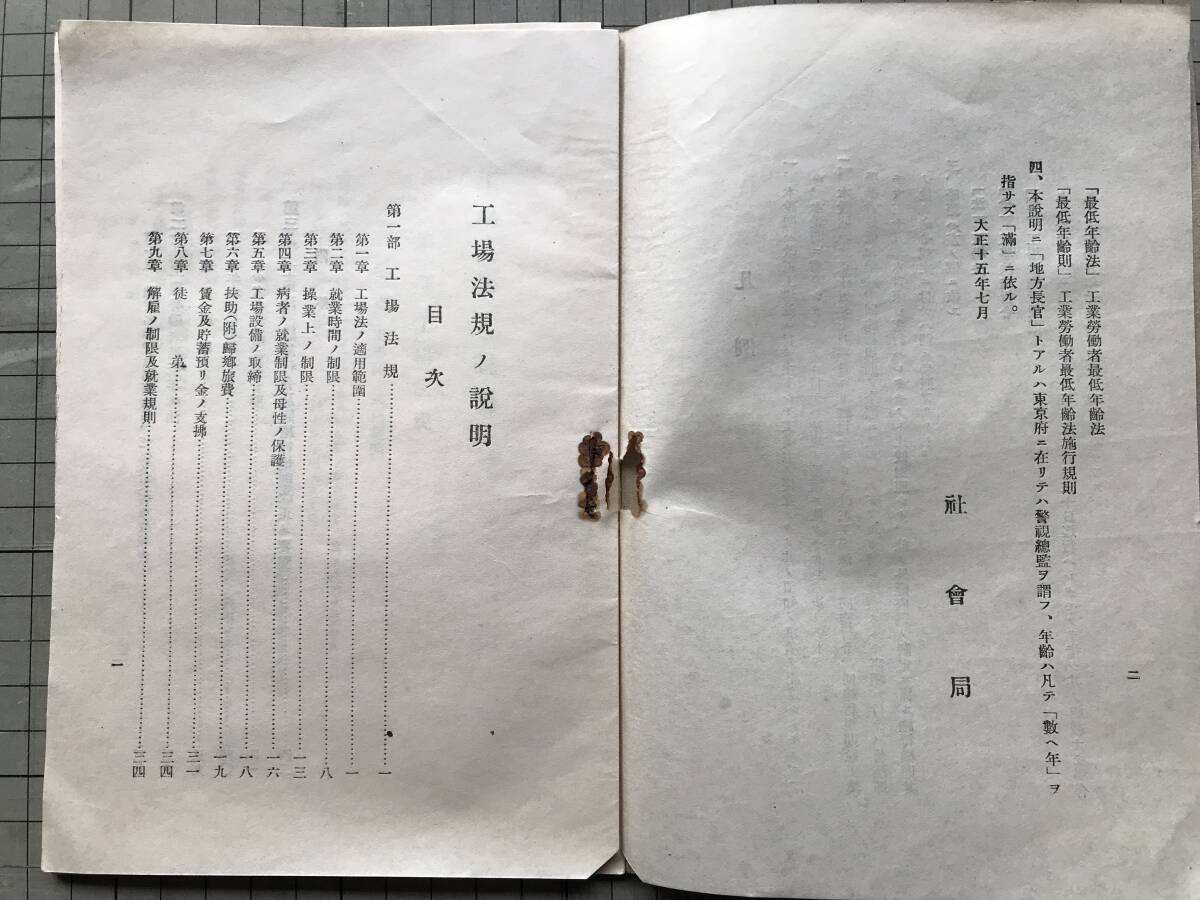 「最低年齡法」 工業勞働者最低年齡法
「最低年齡則」 工業勞働者最低年齡法施行規則
四、本說明ニ「地方長官」トアルハ東京府ニ在リテハ警視總監ヲ謂フ、年齡ハ凡テ「數ヘ年」ヲ
指サズ「滿」ニ依ル。
大正十五年七月
社會局
二
工場法規ノ說明
目次
第一部 工場法規…………一
第一章 工場法ノ適用範圍…………一
第二章 就業時間ノ制限…………八
第三章 操業上ノ制限…………一三
第四章 病者ノ就業制限及母性ノ保護…………一六
第五章 工場設備ノ取締…………一八
第六章 扶助(附)歸鄕旅費…………一九
第七章 賃金及貯蓄預リ金ノ支拂…………三一
第八章 徒弟…………三四
第九章 解雇ノ制限及就業規則…………三四
一